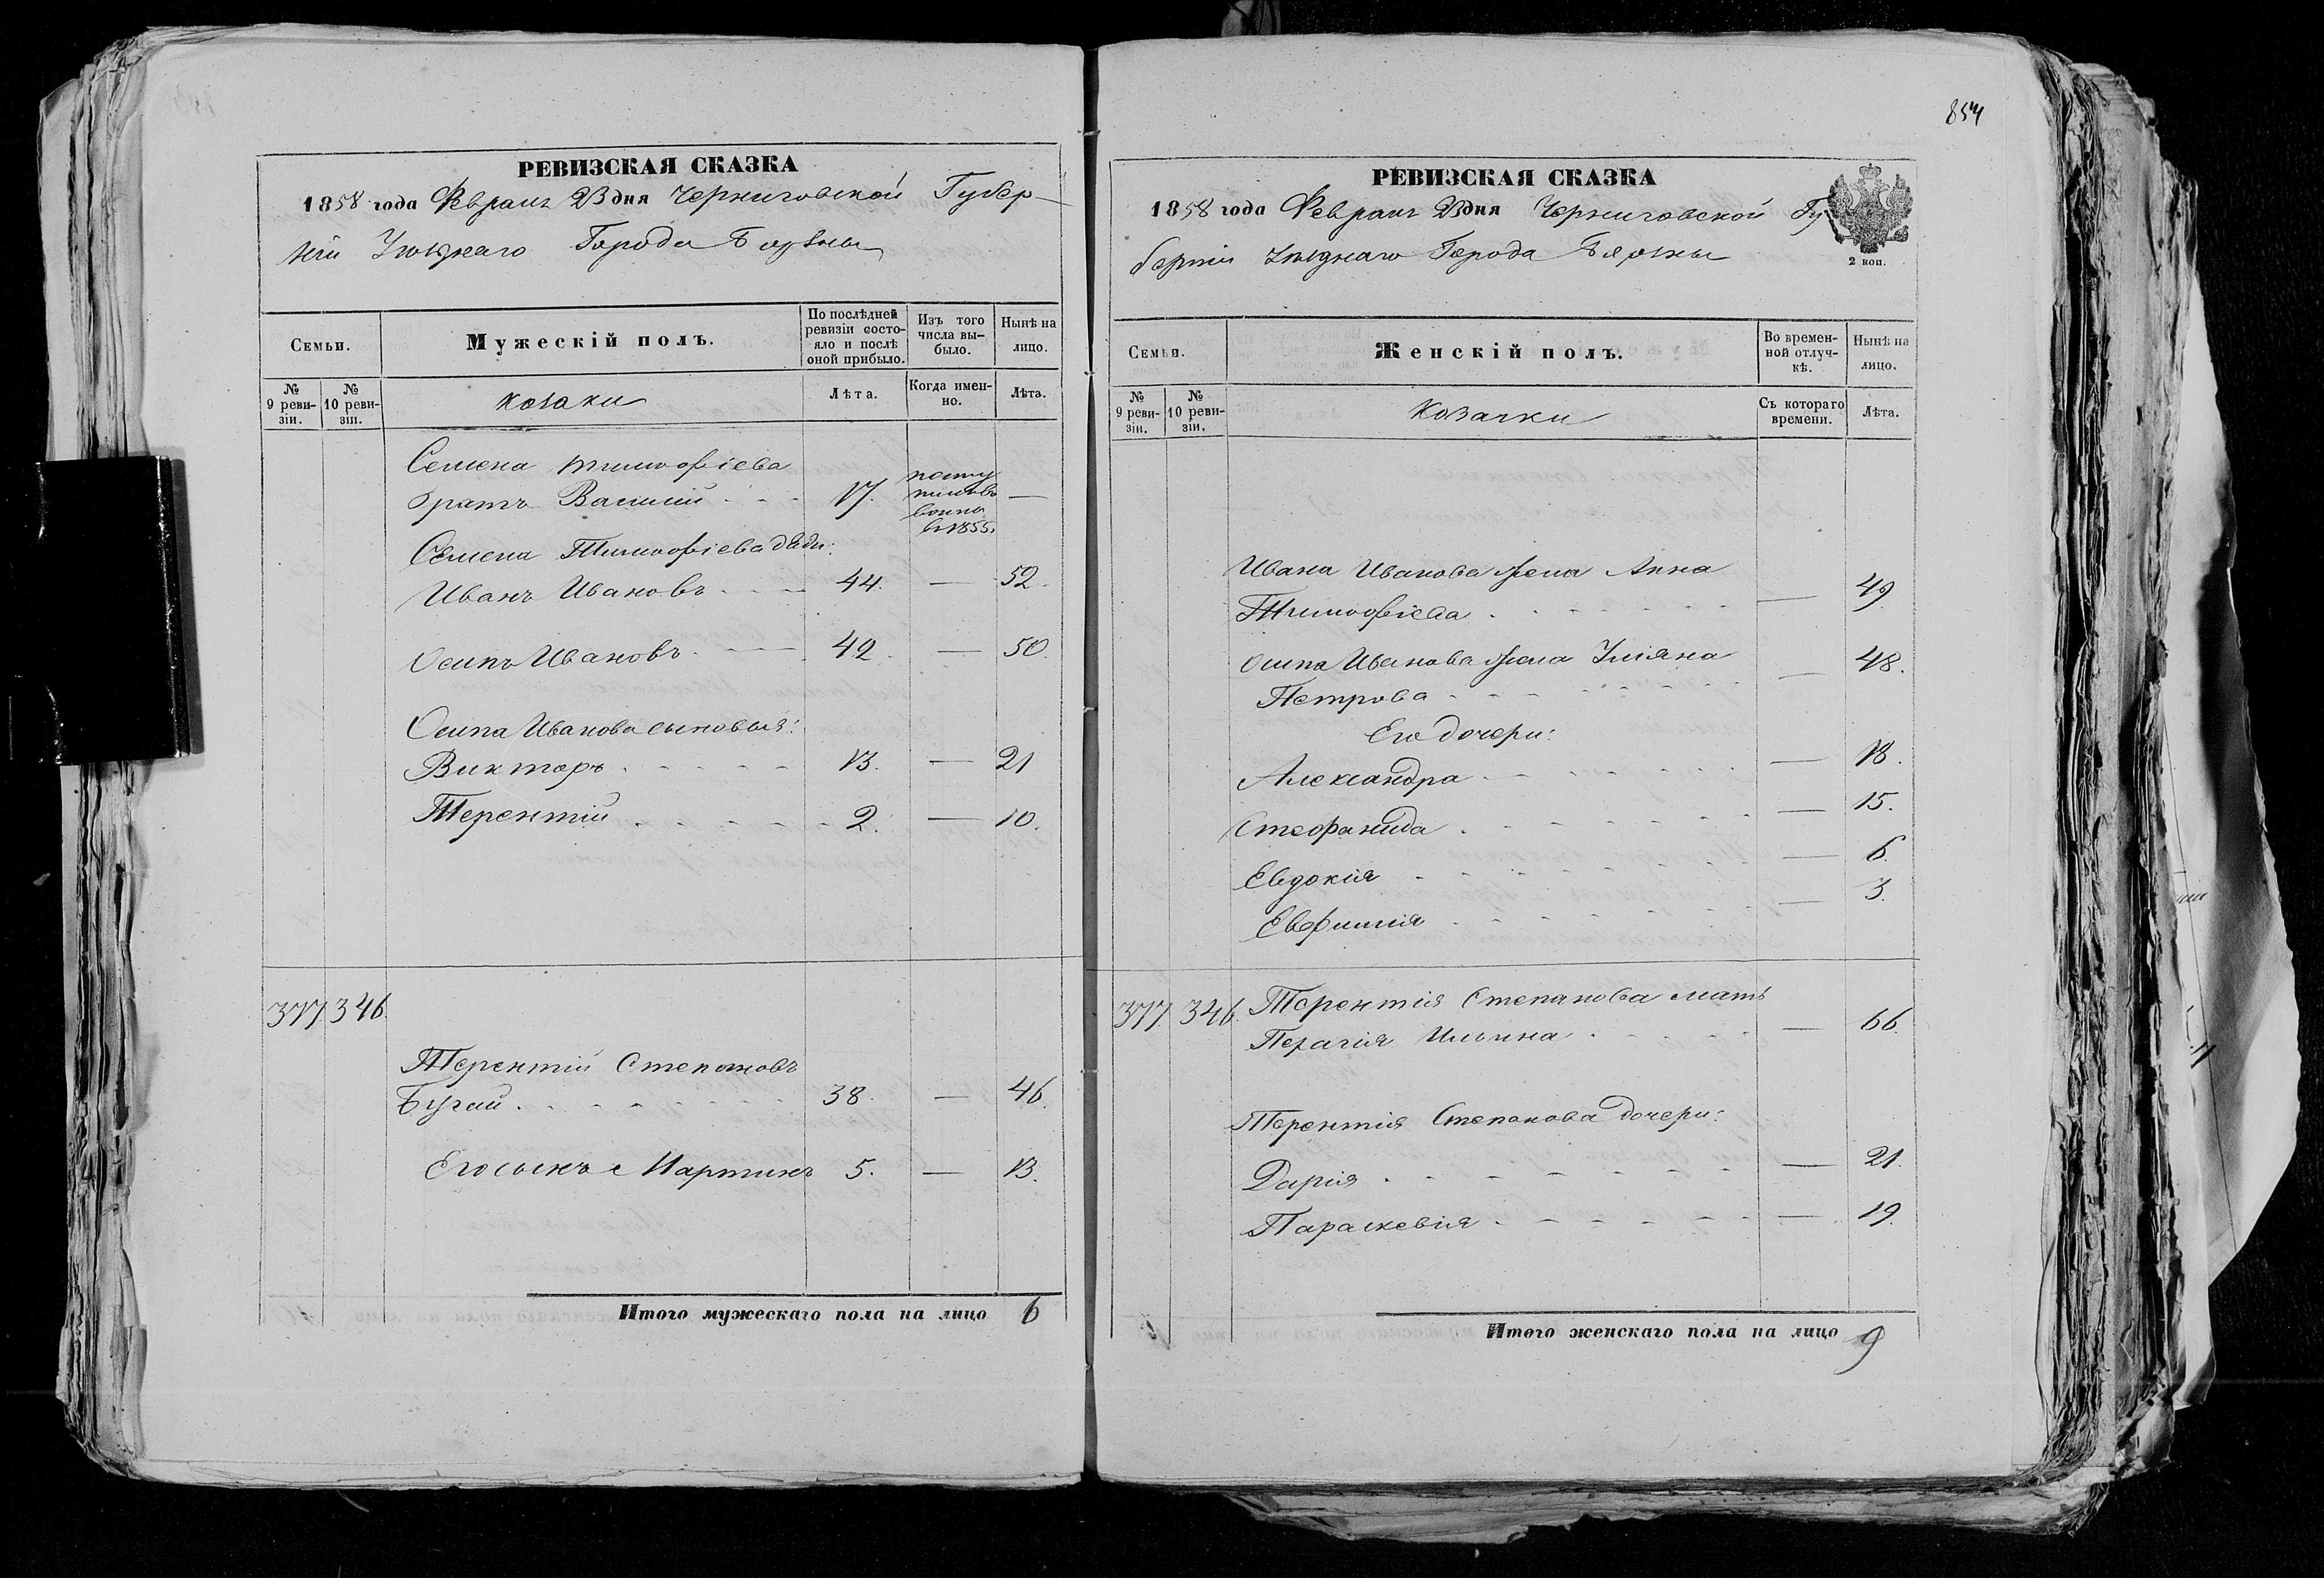 854
РЕВИЗСКАЯ СКАЗКА
1858 года Февраля 23 дня Черниговской Губер-
ніи Уѣзднаго Города Борзны
Семьи.
Мужескій полъ.
По послѣдней ревизіи состо-
яло и послѣ оной прибыло.
Изъ того числа вы-
было.
Нынѣ на лицо.
№ 9 реви-
зіи.
№ 10 реви-
зіи.
Козаки
Лѣта.
Когда имен-
но.
Лѣта.
Семена Тимофіева
братъ Василій 17. —
въ 1855.
Семена Тимофіева дяди:
Иванъ Ивановъ 44. — 52.
Осипъ Ивановъ 42. — 50.
Осипа Иванова сыновья:
Викторъ 13. — 21
Терентій 2. — 10.
377 346.
Терентій Степановъ
Бугай 38. — 46.
Его сынъ Мартинъ 5. — 13.
Итого мужескаго пола на лицо 6
РЕВИЗСКАЯ СКАЗКА
1858 года Февраля 23 дня Черниговской Гу
берніи Уѣзднаго Города Борзны
2 коп.
Семьи.
Женскій полъ.
Во времен-
ной отлуч-
кѣ.
Нынѣ на лицо.
№ 9 реви-
зіи.
№ 10 реви-
зіи.
Козачки
Съ котораго времени.
Лѣта.
Ивана Иванова жена Анна
Тимофіева — 49.
Осипа Иванова жена Уліяна
Петрова — 48.
Его дочери:
Александра — 18.
Стефанида — 15.
Евдокія — 6.
Евфимія — 3.
377 346. Терентія Степанова мать
Пелагія Ильина — 66.
Терентія Степанова дочери:
Дарія — 21.
Параскевія — 19.
Итого женскаго пола на лицо 9